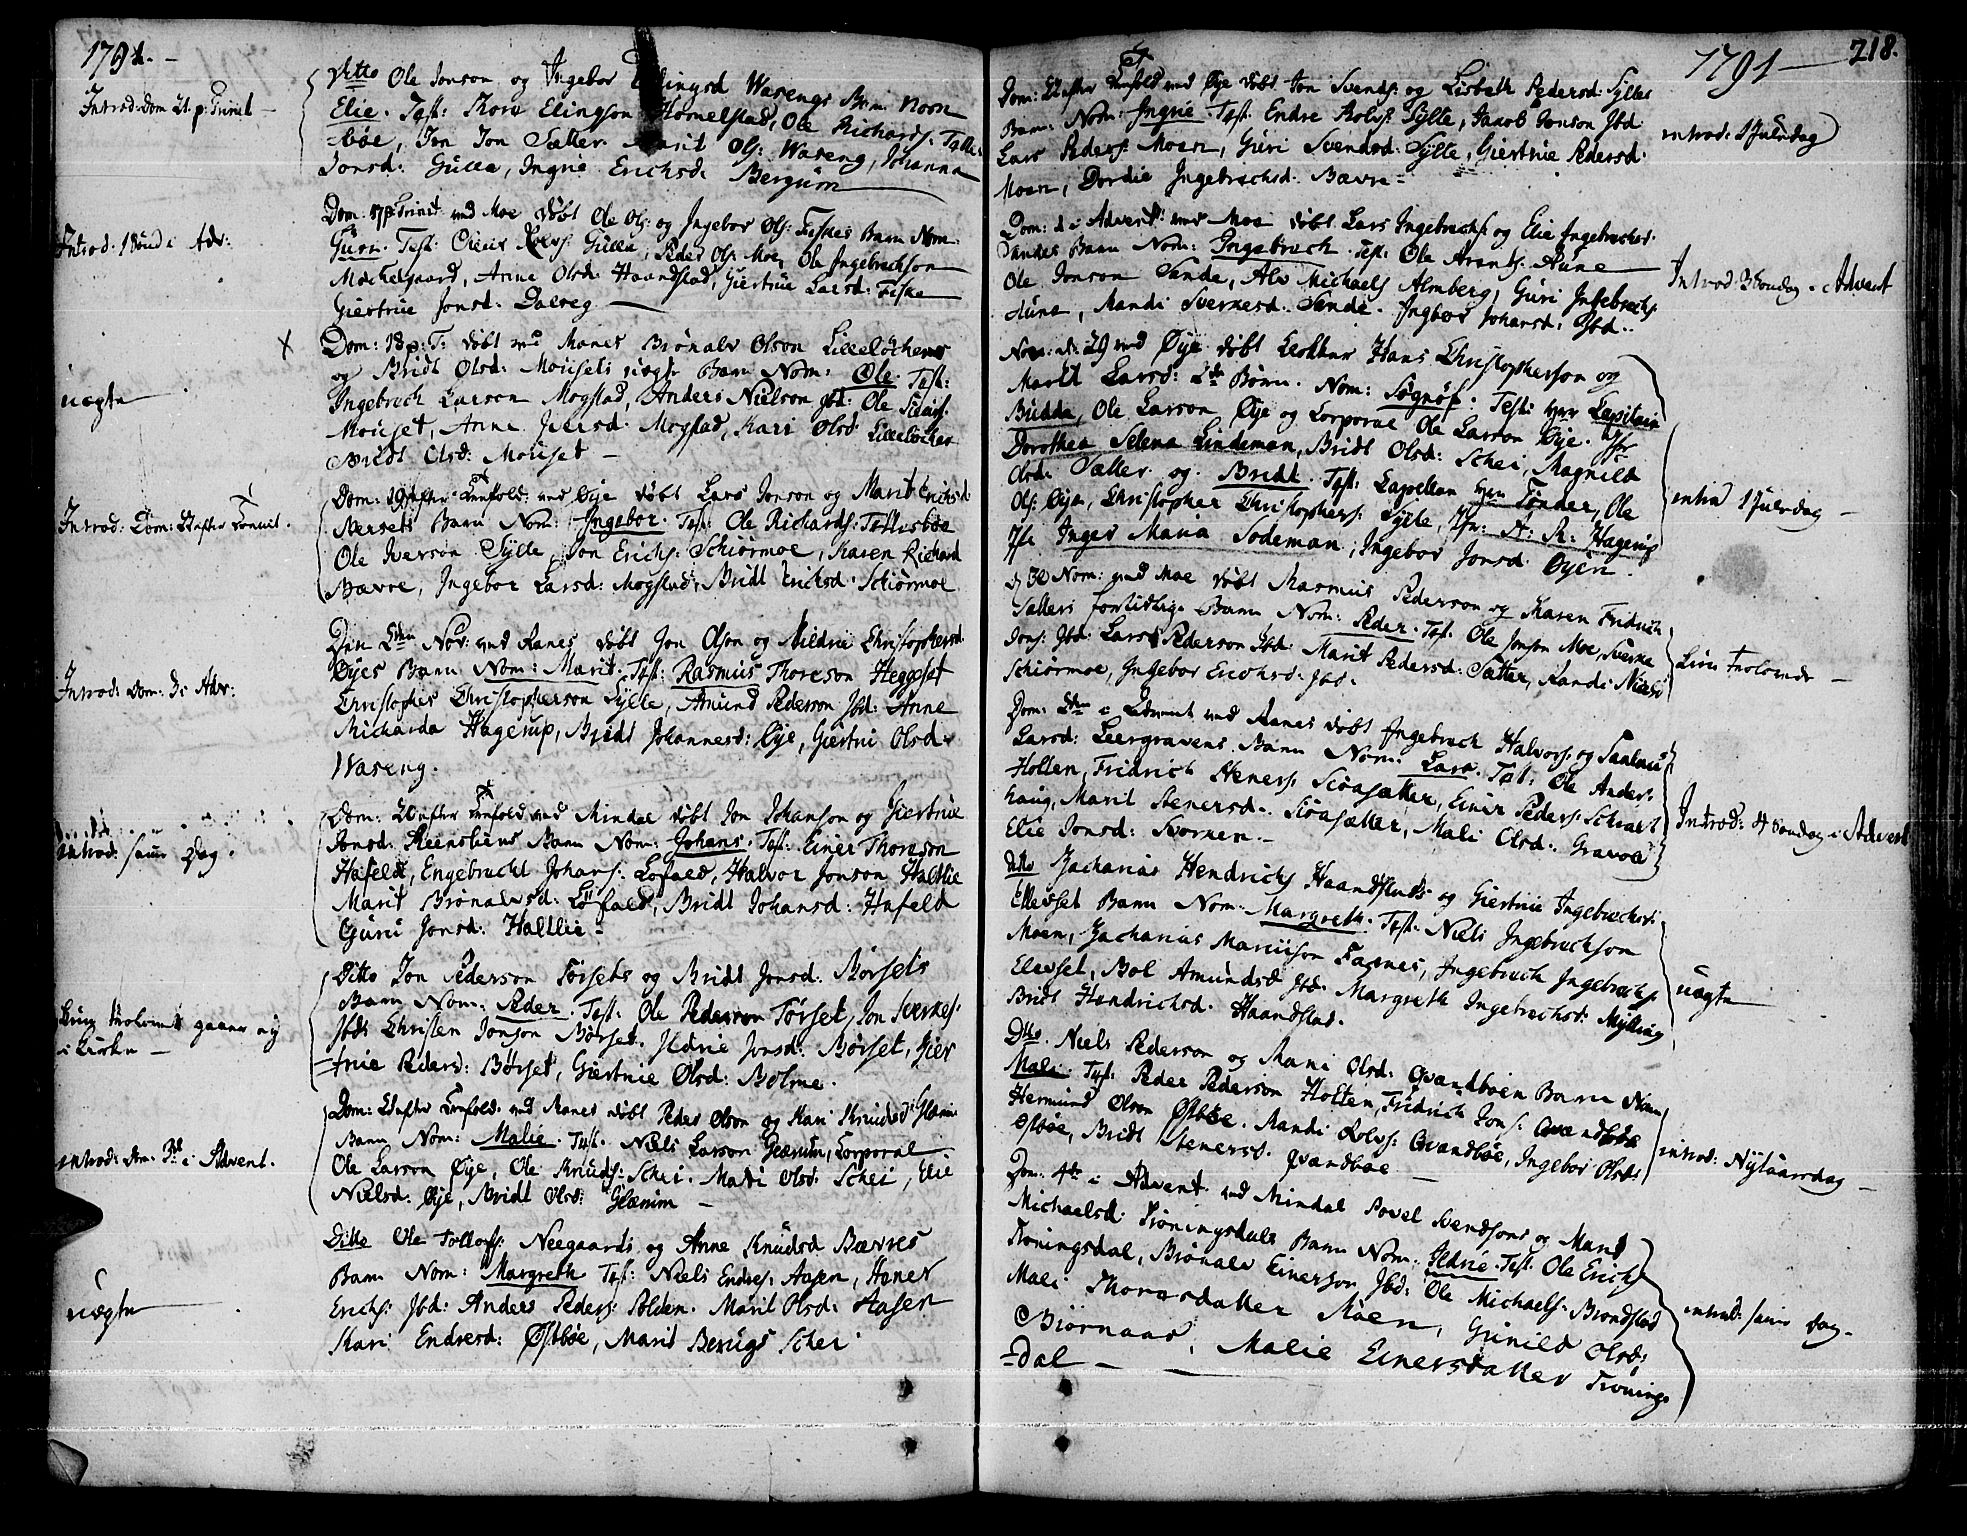 1791. -
Introd: Dom 21. p: Trinit -
Ditto Ole Jonson og Ingebor Wasengs Barn Nom
Elie. Test: Thore Elingson Hømelstad, Ole Richards: Telles-
bøe, Jon Jon Sætter. Marit Ols: Waseng, Johanna
Jonsd: Gulla, Ingrie Erichsd. Bergum
Introd: 1 Sønd i Adv:
Dom: 17 p Trinit ved Moe døbt Ole Ols: og Ingebor Ols: Fiskes Barn Nom:
Guru. Test: Rolvs: Gulla, Peder Ols: Moe, Ole Ingebrechson
Mochelgaard, Anne Olsd: Haandstad, Giertrue Larsd: Fiske
Giertrue Jonsd: Dalseg
uægte
Dom: 18 p: T: døbt ved Ranes Brønald Olson Lilleløchens
og Bridt Olsd: Mouset uægte Barn Nom: Ole. Test:
Ingebrech Larson Mogstad, Anders Nielson Jbd: Ole
Mouset, Anne Iversd. Mogstad, Kari Olsd Lilleløchen
Bridt Olsd: Mouset -
Introd: Dom:
Dom: 19 efter Trefold: ved Øye døbt Lars Jonson og Marit Erichsd
Nersets Barn Nom: Ingebor. Test: Ole Richards: Tellesbøe
Ole Iverson Sylte, Jon Erichs: Schiørmoe, Karen Richard
Bævre, Ingebor Larsd: Mogstad, Bridt Erichsd. Schiørmoe
Introd: Dom: 3. i Adv:
Den Nov: ved Ranes døbt Jon Olson og Mildrie Christophersd
Øyes Barn Nom: Marit. Test: Rasmus Thoreson Heggset
Christopher Christopherson Sylte, Amund Pederson Jbd: Anne
Micharda Hagerup, Bridt Johannesd: Øye, Giertrue Olsd.
Waseng.
Introd: samme Dag.
Dom: 20 efter Trefold: ved Rindal døbt Jon Johanson og Giertrue
Jonsd: Reensliens Barn Nom: Johans. Test: Einer Thoreson
Hafeldt, Engebrecht Johans: Løfald, Halvor Jonson Haltlie
Marit Brønaldsd: Løfald, Bridt Johansd: Hafeld
Guru Jonsd: Haltlie -
gaaer ey
i Kirke -
Ditto Jon Pederson Torsets og Bridt Jonsd: Børsets
Barn Nom: Peder. Test: Ole Pederson Torset, Jon Sverkes:
Jbd: Christen Jonson Børset. Ildrie Jonsd: Børset, Gier
-true Peders: Børset, Giertrue Olsd: Bolme.
introd: Dom: 3de i Advent.
Dom: 21 efter Trefold: ved Ranes døbt Peder Olson og Kari Knudsd: Glærum
Barn Nom: Malie. Test. Niels Larson Glærum, Corporal
Ole Larson Øye, Ole Knuds: Schei. Mari Olsd: Schei, Elie
Nielsd: Øye, Bridt Olsd: Glærum -
uægte
Ditto Ole Tollofs: Neegaards og Anne Knudsd Bævres
Barn Nom: Margreth Test: Niels Endres: Aasen, Haner
Erichs: Jbd: Anders Peders: Polden. Marit Olsd: Aasen
Kari Endresd: Østbøe, Marit Schei

1791 - 218.
Dom: efter Trefold ved Øye døbt Jon Svends: og Lisbeth Pedersd: Syltes
Barn: Nom: Ingrie. Test. Endre Rolvs: Sylte, Jacob Jonson Jbd:
Lars Peders: Moen, Guri Svendsd: Sylte, Giertrue Pedersd.
Moen, Dordie Ingebrechsd: Bævre -
introd: 1 Juledag
Dom: 1 i Advent: ved Moe døbt Lars Ingebrechs: og Elie Ingebrechsd.
Sandes Barn Nom: Ingebrech. Test: Ole Arents: Aune
Ole Jonson Sande, Alv Michaels Almberg, Guri Ingebrechs
Aune, Randi Sverkesd. Sande. Ingbor Johansd: Jbd..
Introd: 3 Søndag i Advent
Nov: d: 29 ved Øye døbt Klokker Hans Christopherson og
Marit Larsd: 2de Børn. Nom: Søgnöf. Test: Hrr Capitain
Budda, Ole Larson Øye og Corporal Ole Larson Øye. Jfr
Dorothea Selena Lindeman, Bridt Olsd: Schei, Magnild
Olsd: Sætter. og. Bridt. Test: Capellan Hrr Tønder, Ole
Ols: Øyen, Christopher Christophers: Sylte, Jfr: A: R: Hagerup
Jfr Inger Maria Sodeman, Ingebor Jonsd. Øyen.
1 Juledag -
d 30 Nov: ved Moe døbt Rasmus Pederson og Karen Fridrich
Sætters Barn Nom: Peder. Test: Ole Jonson Moe, Sverke
Jons: Jbd: Lars Pederson Jbd. Marit Pedersd: Sætter, Randi Nielsd
Schiørmoe, Ingebor Erichsd: Jbd.
Dom: 2den i Advent ved Ranes døbt Ingebrech Halvors: og
Larsd: Leergravens Barn Nom: Lars. Test: Ole Anders:
Holten, Fridrich Steners: Sioasætter, Einer Peders: Schart
haug, Marit Stenersd. Sioasætter, Mali Olsd: Gravva
Elie Jonsd: Svorken -
Introd: 4 Søndag i Advent
ditto Zacharias Hendrichs Haandstads og Giertrue Ingebrechsd.
Ellevset Barn Nom: Margreth. Test: Niels Ingebrechson
Moen, Zacharias Fagnes, Ingebrech Ingebrechs:
Elevset, Bol Amundsd Jbd. Margreth Ingebrechsd: Mytting
Bridt Hendrichsd. Haandstad.
uægte
Dto. Niels Pederson og Olsd: Qvandbøen Barn Nom
Mali. Test: Peder Pederson Holten, Fridrich Jons: Qvandbøe
Hermund Olson Østbøe. Randi Rolvs: Qvandbøe, Ingebor Olsd:
Østbøe, Bridt Stenersd. Qvandbøe -
introd: Nytaarsdag -
Dom: 4de i Advent ved Rindal Povel Svendsons og Marit
Michaelsd: Troningsdals Barn Nom: Ildrie. Test. Ole Erichs
Troningsdal, Brønald Einerson Jbd: Ole Michaels: Brandstad
Mali Thoresdatter Moen, Gunild Olsd:
Biørnaas, Malie Einersdatter Tronings-
-dal -
introd: samme dag -